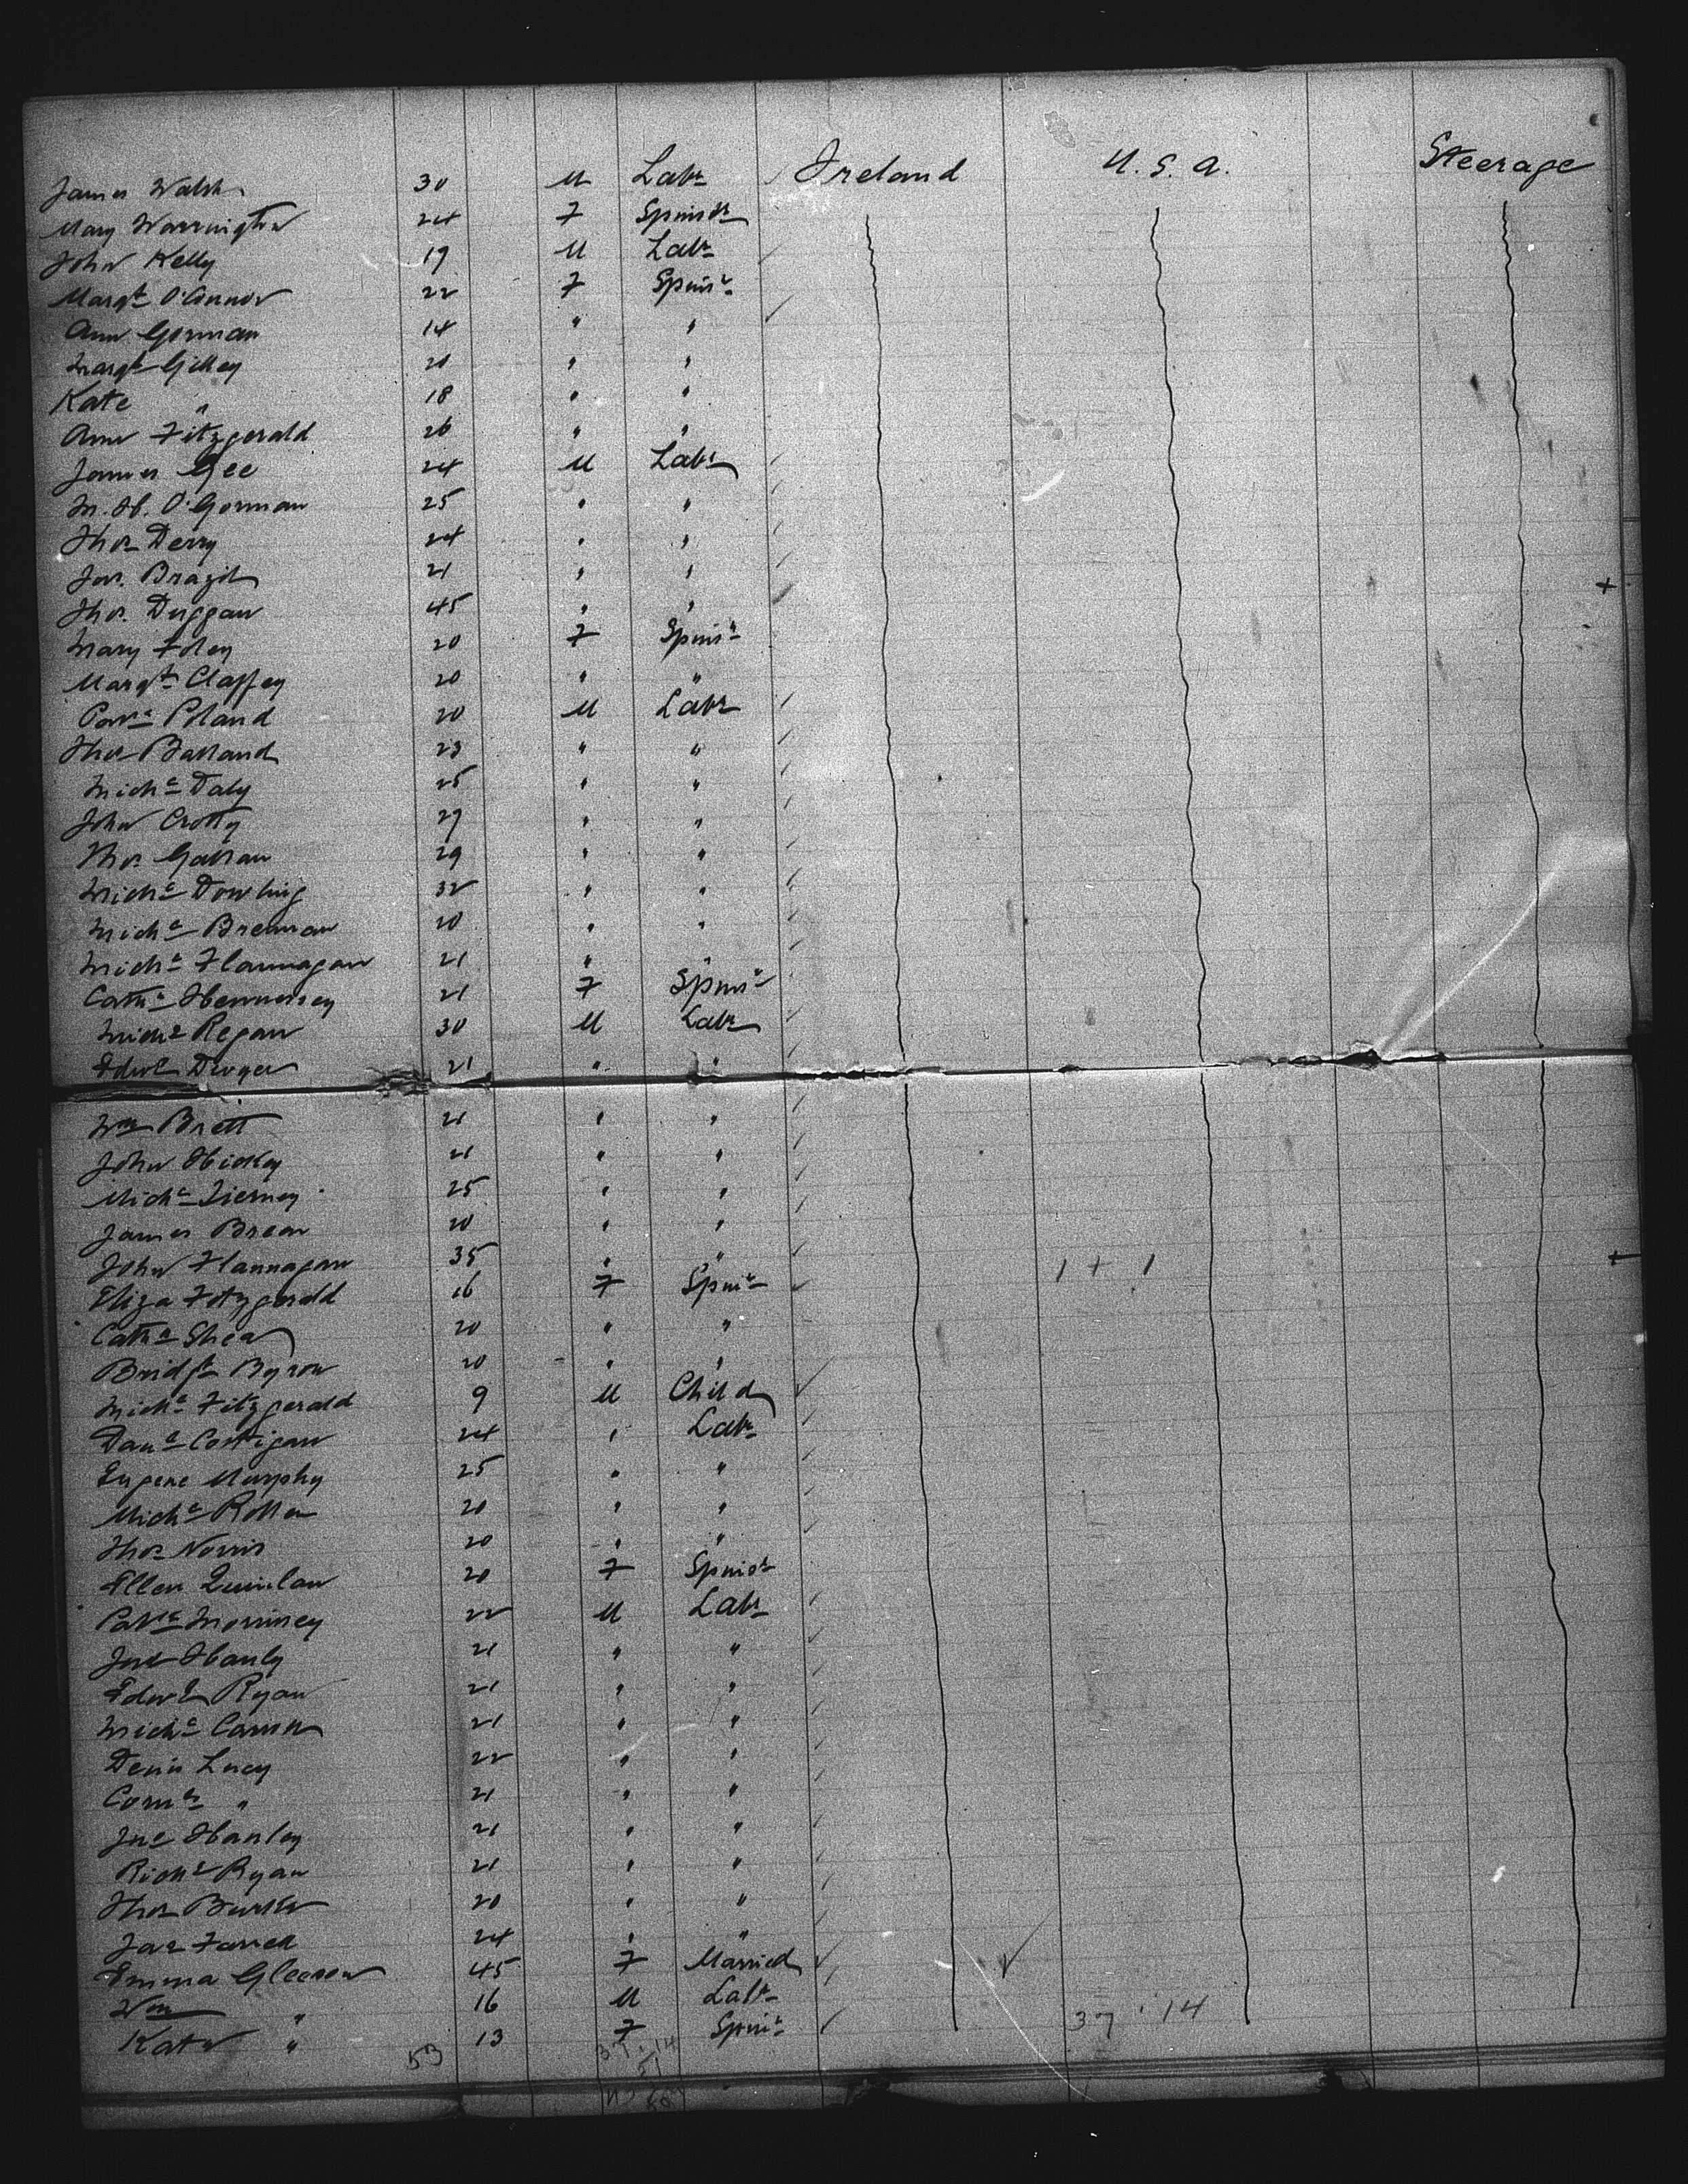 James Walsh 30 M Labr Ireland U.S.A. Steerage
Mary Warrington 24 F Spinstr
John Kelly 19 M Labr
Margt O'Connor 22 F Spinsr
Ann Gorman 14 " "
Margt Gilley 20 " "
Kate " 18 " "
Ann Fitzgerald 26 " "
James Gee 24 M Labr
M. H. O'Gorman 25 " "
Thos Derry 24 " "
Jas. Brazil 21 " "
Thos. Duggan 45 " "
Mary Foley 20 F Spinsr
Margt Claffey 20 " "
Patk Poland 20 M Labr
Thos Balland 23 " "
Michl Daly 25 " "
John Crotty 29 " "
Thos. 29 " "
Michl Dowling 32 " "
Michl Brennan 20 " "
Michl Flannagan 21 " "
Cathe Hennessey 21 F Spinsr
Michl Regan 30 M Labr
Edwd Dwyer 21 " "
Wm Brett 21 " "
John Hickey 21 " "
Michl Tierney 25 " "
James Breen 20 " "
John Flannagan 35 " " 1 + 1
Eliza Fitzgerald 16 F Spinr
Cathe Shea 20 " "
Bridgt Byron 20 " "
Michl Fitzgerald 9 M Child
Danl Costigan 24 " Labr
Eugene Murphy 25 " "
Michl 20 " "
Thos Norris 20 " "
Ellen Quinlan 20 F Spinstr
Patk Morriney 22 M Labr
Jno Hanly 21 " "
Edwd Ryan 21 " "
Michl 21 " "
Denis Lucy 22 " "
Corns " 21 " "
Jno Hanley 21 " "
Richd Ryan 21 " "
Thos Burke 20 " "
Jas Farrell 24 " "
Emma Gleeson 45 F Married
Wm " 16 M Labr
Kate " 13 F Spinr 37 . 14
53 37 . 14
51